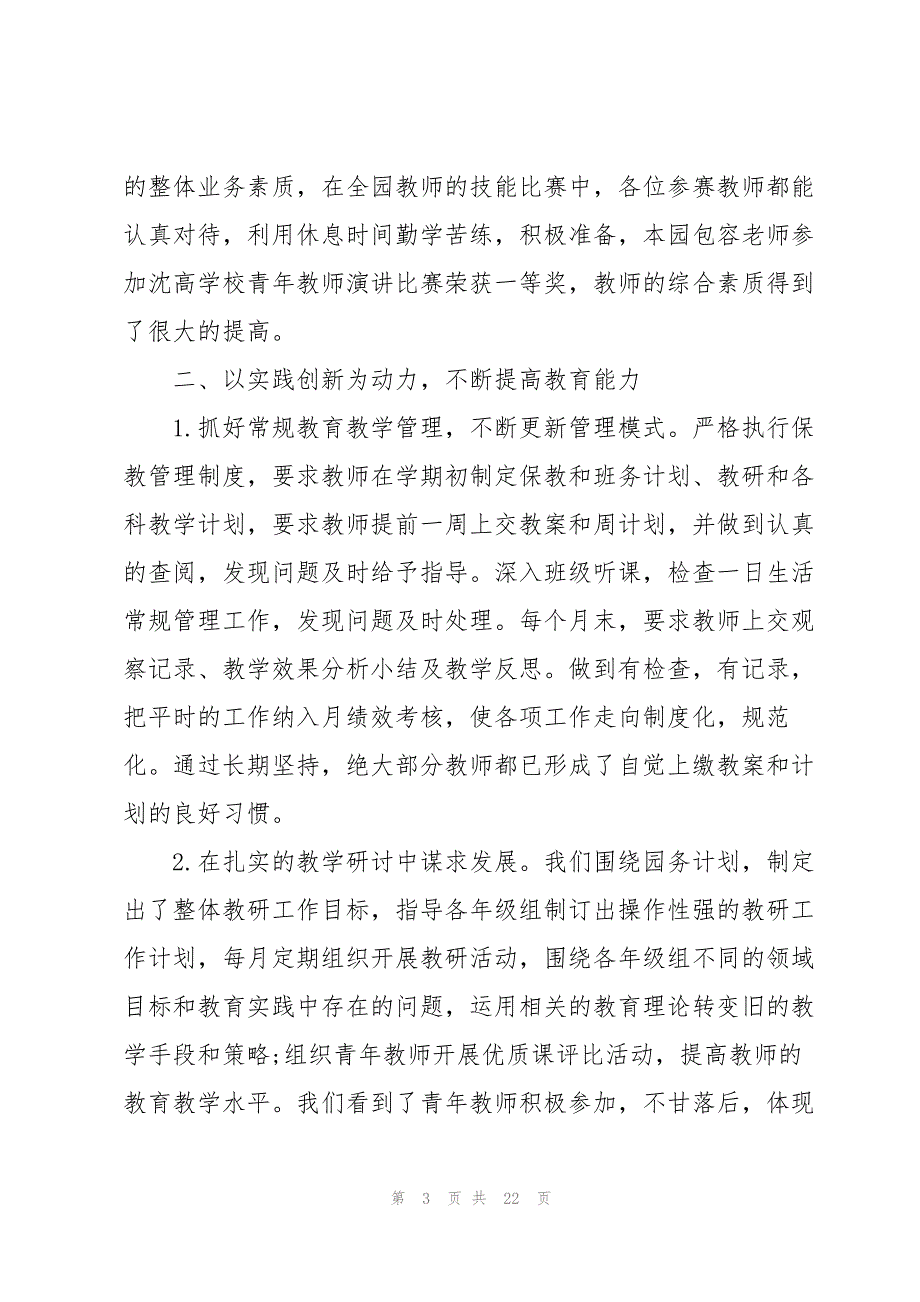 的整体业务素质，在全园教师的技能比赛中，各位参赛教师都能
认真对待，利用休息时间勤学苦练，积极准备，本园包容老师参
加沈高学校青年教师演讲比赛荣获一等奖，教师的综合素质得到
了很大的提高。
二、以实践创新为动力，不断提高教育能力
1.抓好常规教育教学管理，不断更新管理模式。严格执行保
教管理制度，要求教师在学期初制定保教和班务计划、教研和各
科教学计划，要求教师提前一周上交教案和周计划，并做到认真
的查阅，发现问题及时给予指导。深入班级听课，检查一日生活
常规管理工作，发现问题及时处理。每个月末，要求教师上交观
察记录、教学效果分析小结及教学反思。做到有检查，有记录，
把平时的工作纳入月绩效考核，使各项工作走向制度化，规范
化。通过长期坚持，绝大部分教师都已形成了自觉上缴教案和计
划的良好习惯。
2.在扎实的教学研讨中谋求发展。我们围绕园务计划，制定
出了整体教研工作目标，指导各年级组制订出操作性强的教研工
作计划，每月定期组织开展教研活动，围绕各年级组不同的领域
目标和教育实践中存在的问题，运用相关的教育理论转变旧的教
学手段和策略;组织青年教师开展优质课评比活动，提高教师的
教育教学水平。我们看到了青年教师积极参加，不甘落后，体现
第 3 页 共 22 页